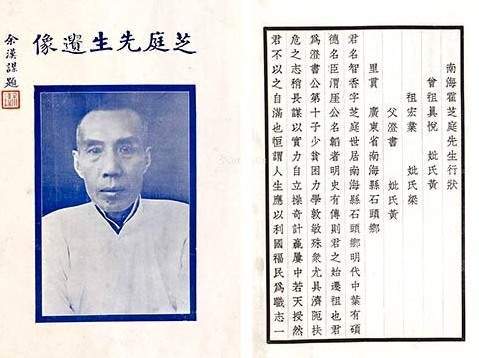 芝庭先生遺像
余漢謀題
南海霍芝庭先生行狀
曾祖巽悅 妣氏黃
祖宏業 妣氏梁
父澄書 妣氏黃
里貫 廣東省南海縣石頭鄉
君名智香字芝庭世居南海縣石頭鄉明代中葉有碩
德名臣渭厓公名韜者明史有傳則君之始遷祖也君
爲澄書公第十子少貧困力學敦敏殊衆尤具濟阨扶
危之志稍長謀以實力自立操奇計贏屢中若天授然
君不以之自滿也恒謂人生應以利國福民爲職志一